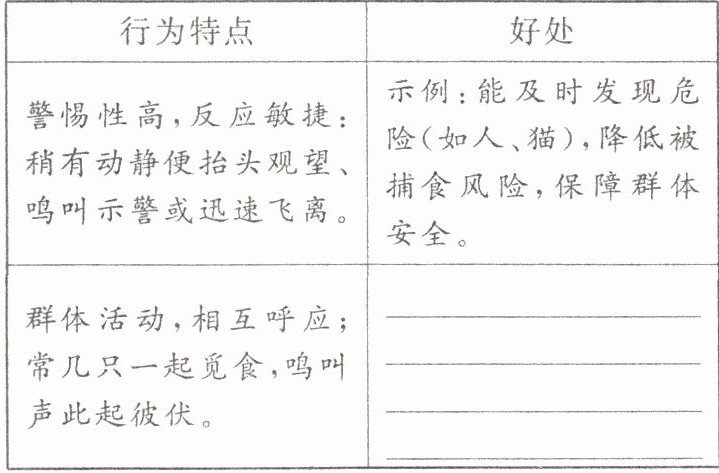 行为特点
好处
警惕性高，反应敏捷：
稍有动静便抬头观望、
鸣叫示警或迅速飞离。
示例：能及时发现危
险（如人、猫），降低被
捕食风险，保障群体
安全。
群体活动，相互呼应；
常几只一起觅食，鸣叫
声此起彼伏。